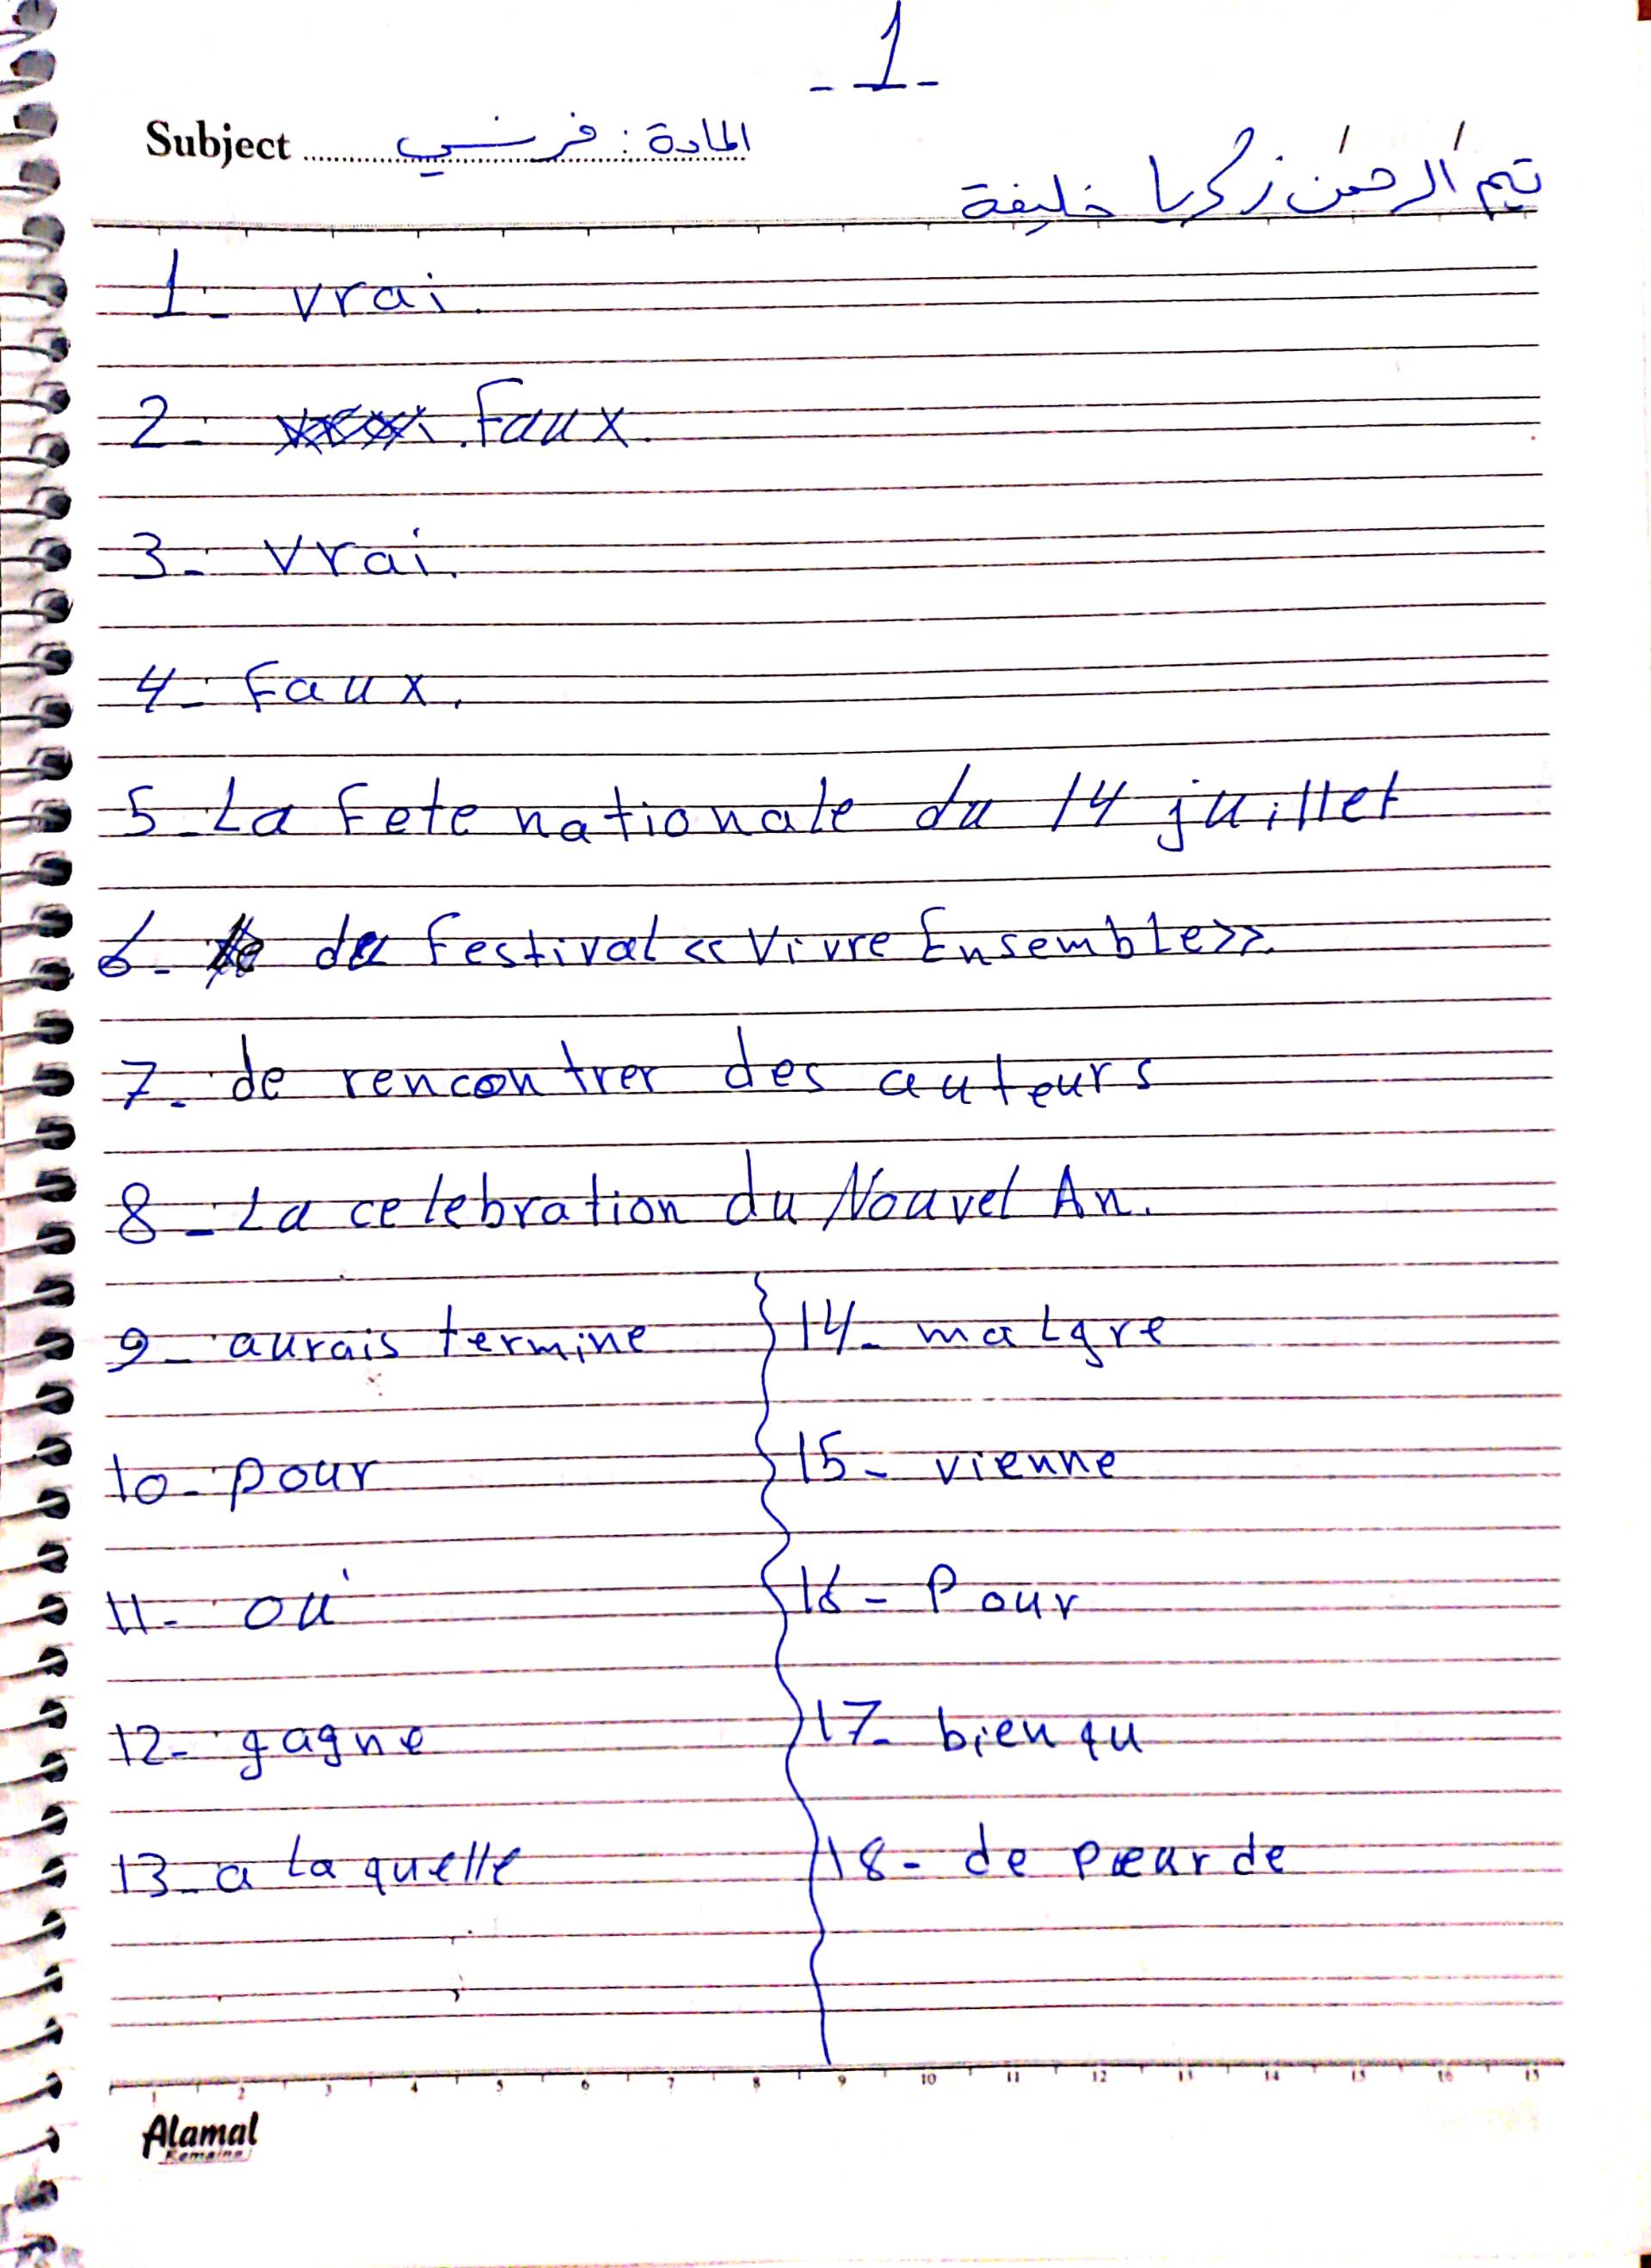 - 1 -
Subject المادة : فرنسي
تيم الرحمن زكريا خليفة
1- vrai.
2- Faux.
3- Vrai.
4- Faux.
5- La Fete nationale du 14 juillet
6- du Festival << Vivre Ensemble>>.
7- de rencontrer des auteurs
8- La celebration du Nouvel An.
9- aurais termine
10- pour
11- où
12- gagne
13- a laquelle
14- malgre
15- vienne
16- Pour
17- bien qu
18- de pœur de
1 2 3 4 5 6 7 8 9 10 11 12 13 14 15 16 15
Alamal